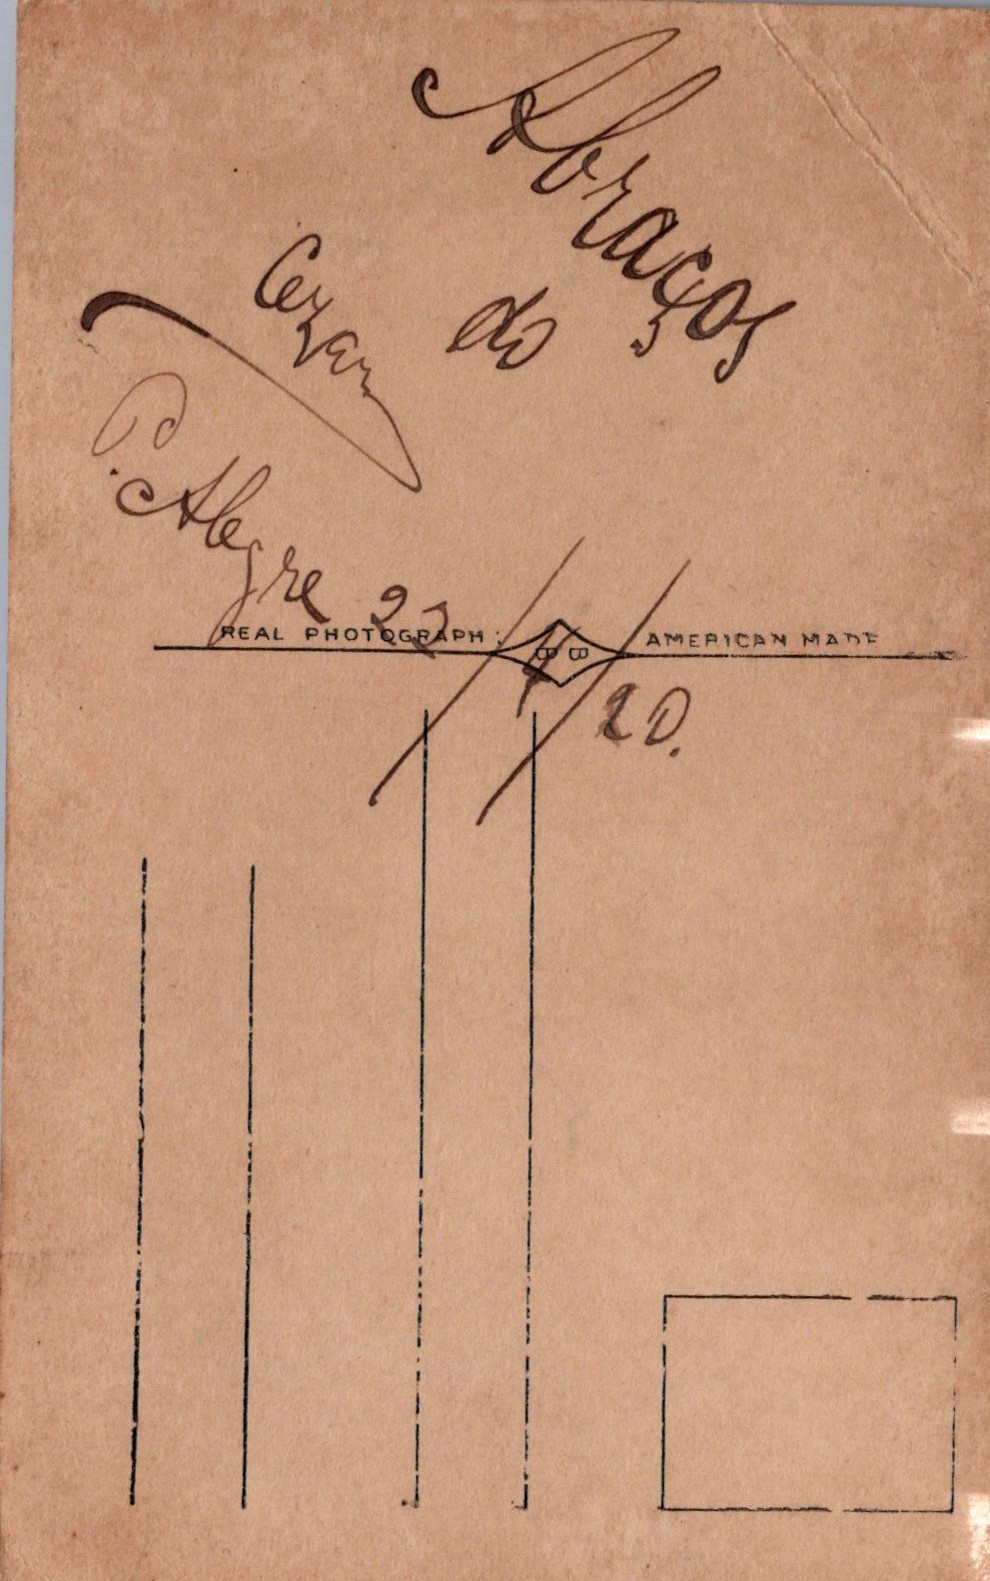 Abraços
do
Cezar
P. Alegre 22/4/20.
REAL PHOTOGRAPH:
BB
AMERICAN MADE